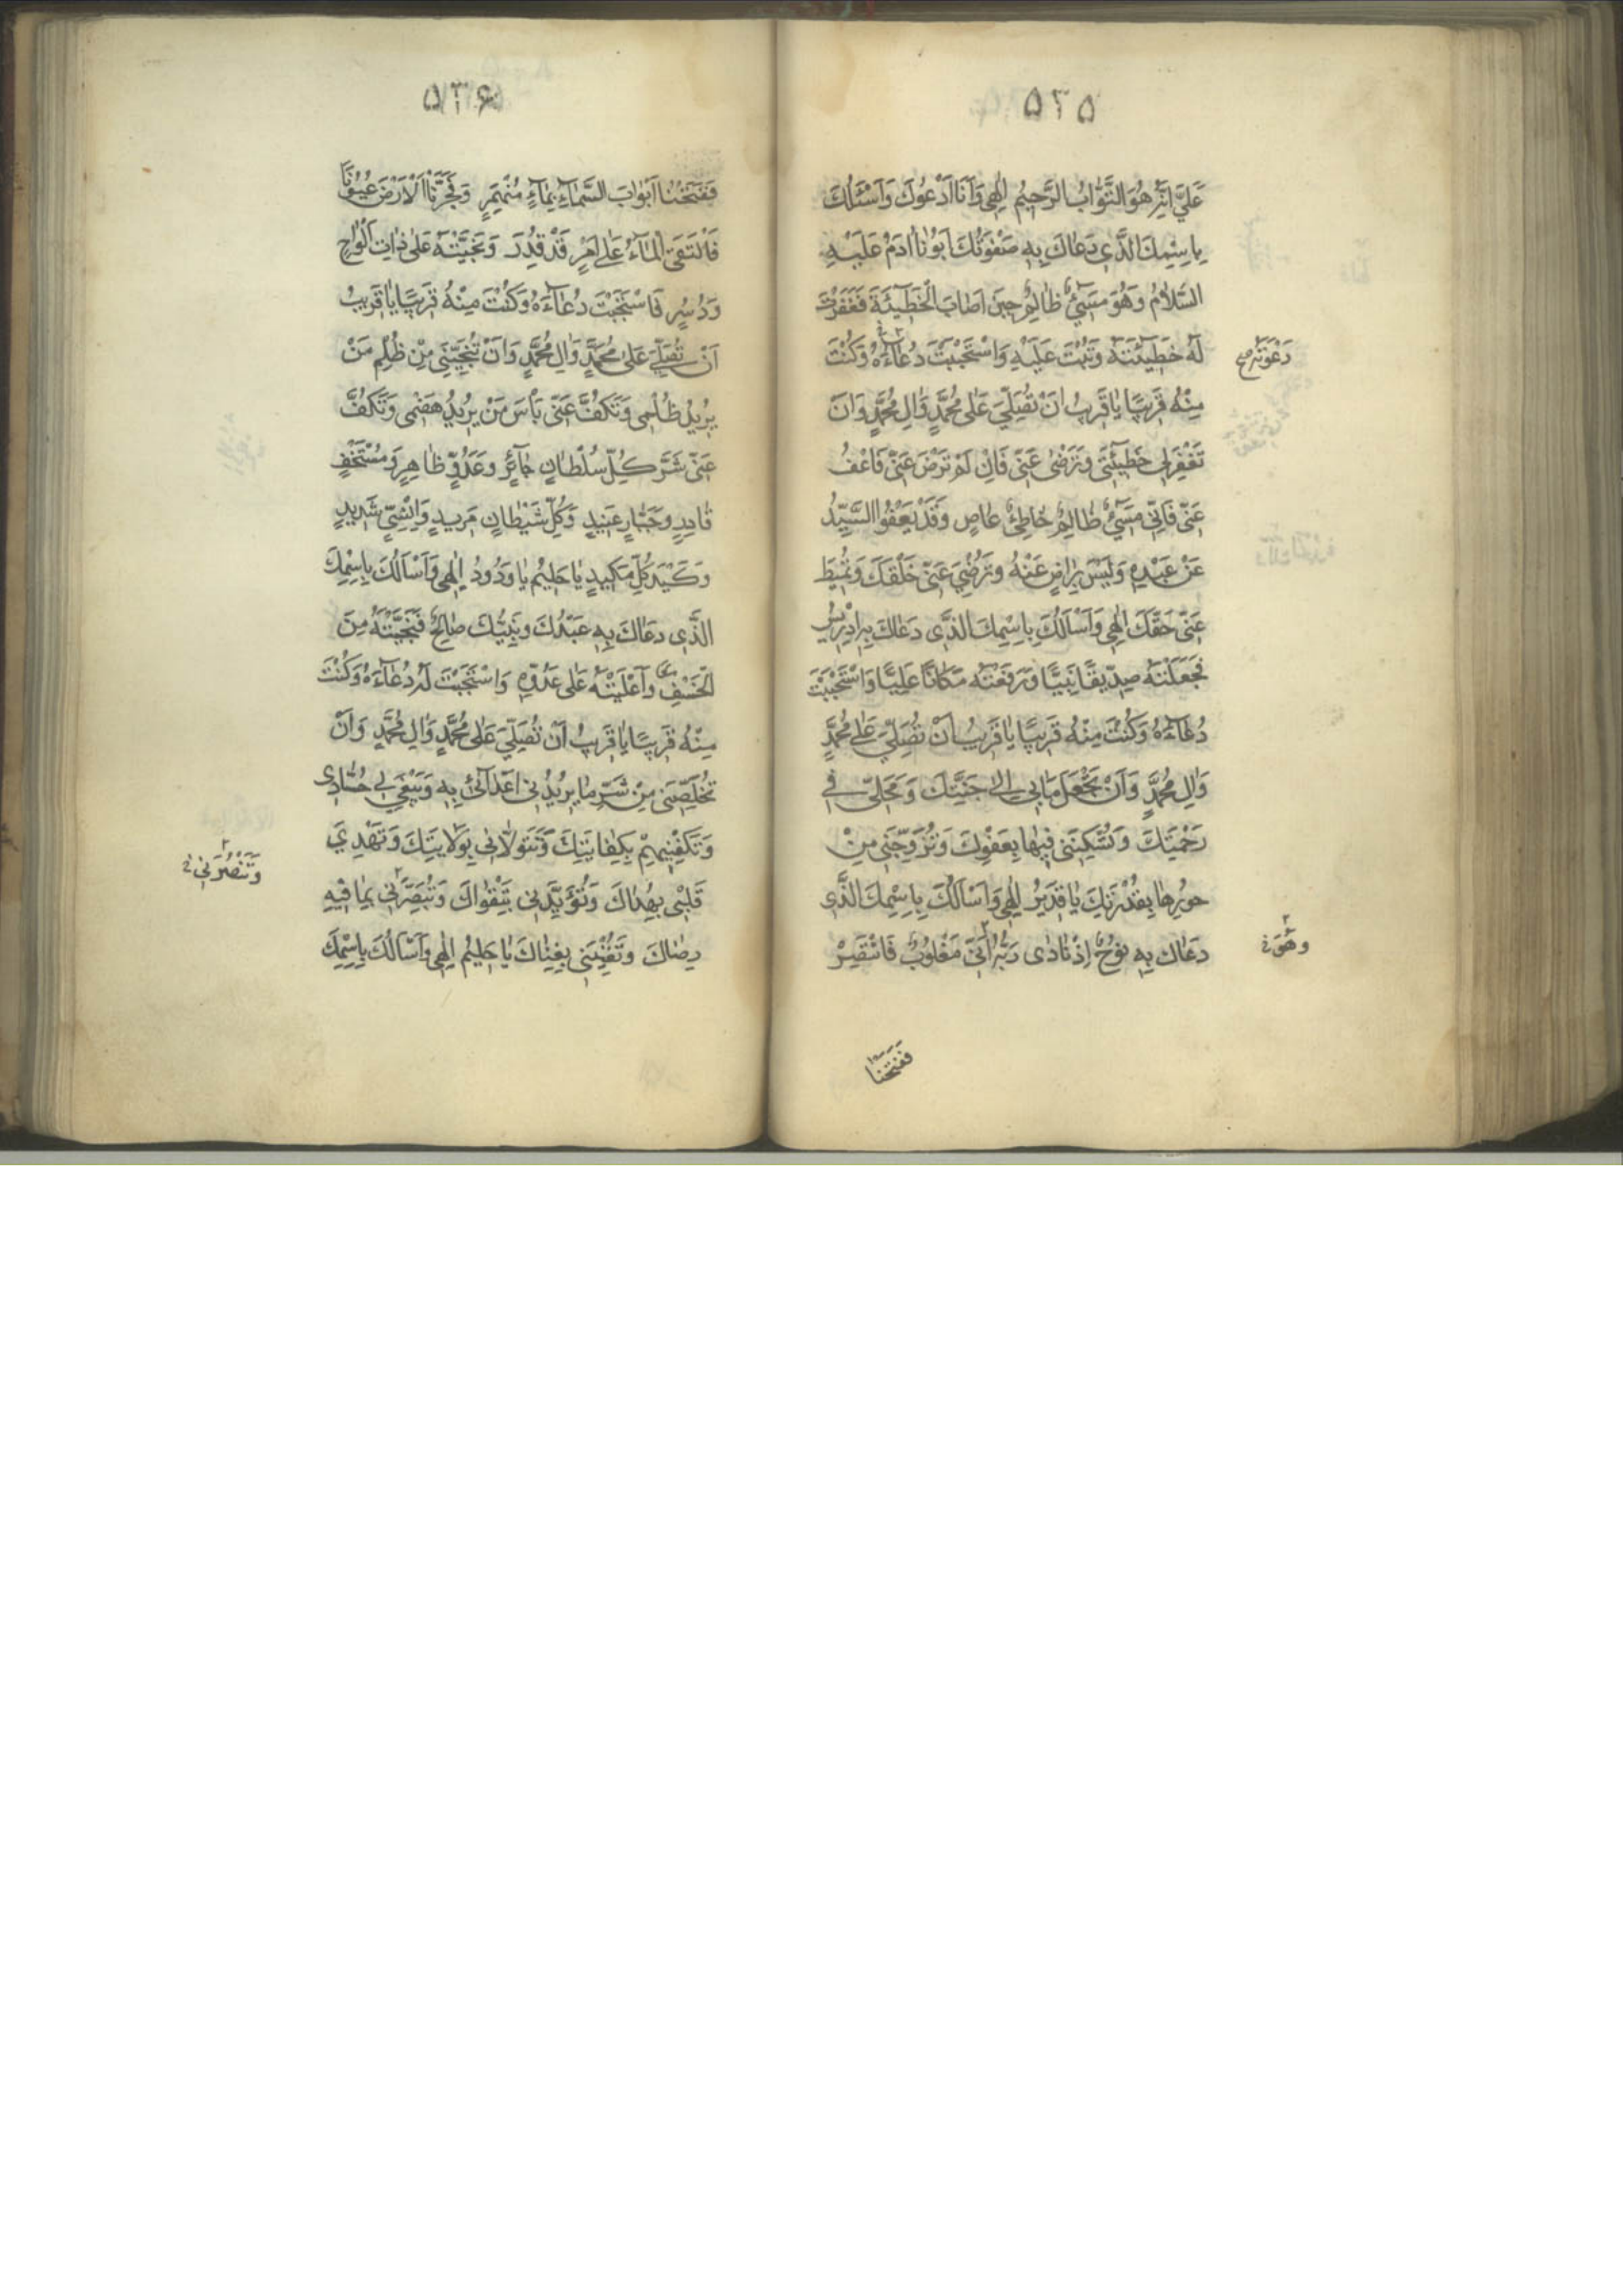 ۵۳۵
عَلَيَّ اِنَّكَ هُوَ التَّوّٰابُ الرَّحيٖمُ اِلٰهيٖ وَاَنَا اَدْعُوكَ وَاَسْئَلُكَ
بِاسْمِكَ الَّذي دَعٰاكَ بِهِ صَفْوَتُكَ اَبُونٰا اٰدَمُ عَلَيْهِ
السَّلاٰمُ وَهُوَ مُسٖيئٌ ظٰالِمٌ حينَ اَصٰابَ الْخَطيٓئَةَ فَغَفَرْتَ
لَهُ خَطيٓئَتَهُ وَتُبْتَ عَلَيْهِ وَاسْتَجَبْتَ دُعٰاءَهُ وَكُنْتَ
دَعْوَتَهُ
مِنْهُ قَريبًا يٰا قَريبُ اَنْ تُصَلِّيَ عَلٰى مُحَمَّدٍ وَّاٰلِ مُحَمَّدٍ وَاَنْ
تَغْفِرَ لي خَطيٓئَتي وَتَرْضٰى عَنّي فَاِنْ لَمْ تَرْضَ عَنّي فَاعْفُ
عَنّي فَاِنّي مُسٖيئٌ ظٰالِمٌ خٰاطِئٌ عٰاصٍ وَقَدْ يَعْفُوا السَّيِّدُ
عَنْ عَبْدِهِ وَلَيْسَ بِرٰاضٍ عَنْهُ وَتُرْضِيَ عَنّي خَلْقَكَ وَتُميطَ
عَنّي حَقَّكَ اِلٰهي وَاَسْاَلُكَ بِاسْمِكَ الَّذي دَعٰاكَ بِهِ اِدْريسُ
فَجَعَلْتَهُ صِدّيقًا نَبِيًّا وَرَفَعْتَهُ مَكٰانًا عَلِيًّا وَاسْتَجَبْتَ
دُعٰاءَهُ وَكُنْتَ مِنْهُ قَريبًا يٰا قَريبُ اَنْ تُصَلِّيَ عَلٰى مُحَمَّدٍ
وَاٰلِ مُحَمَّدٍ وَاَنْ تَجْعَلَ مَاٰبي اِلٰى جَنَّتِكَ وَمَحَلّي في
رَحْمَتِكَ وَتُسْكِنَني فيهٰا بِعَفْوِكَ وَتُزَوِّجَني مِنْ
حُورِهٰا بِقُدْرَتِكَ يٰا قَديرُ اِلٰهي وَاَسْاَلُكَ بِاسْمِكَ الَّذي
دَعٰاكَ بِهِ نُوحٌ اِذْ نٰادٰى رَبَّهُ اَنّي مَغْلُوبٌ فَانْتَصِرْ
وَهُوَ
فَفَتَحْنٰا
۵۳۶
فَفَتَحْنٰا اَبْوٰابَ السَّمٰاءِ بِمٰاءٍ مُنْهَمِرٍ وَفَجَّرْنَا الْاَرْضَ عُيُونًا
فَالْتَقَى الْمٰاءُ عَلٰى اَمْرٍ قَدْ قُدِرَ وَنَجَّيْتَهُ عَلٰى ذٰاتِ اَلْوٰاحٍ
وَدُسُرٍ فَاسْتَجَبْتَ دُعٰاءَهُ وَكُنْتَ مِنْهُ قَريبًا يٰا قَريبُ
اَنْ تُصَلِّيَ عَلٰى مُحَمَّدٍ وَاٰلِ مُحَمَّدٍ وَاَنْ تُنْجِيَني مِنْ ظُلْمِ مَنْ
يُريدُ ظُلْمي وَتَكُفَّ عَنّي بَاْسَ مَنْ يُريدُ هَضْمي وَتَكُفَّ
عَنّي شَرَّ كُلِّ سُلْطٰانٍ جٰائِرٍ وَعَدُوٍّ ظٰاهِرٍ وَمُسْتَخْفٍ
قٰادِرٍ وَجَبّٰارٍ عَنيدٍ وَكُلِّ شَيْطٰانٍ مَريدٍ وَاِنْسِيٍّ شَديدٍ
وَكَيْدِ كُلِّ مَكيدٍ يٰا حَليمُ يٰا وَدُودُ اِلٰهي وَاَسْاَلُكَ بِاسْمِكَ
الَّذي دَعٰاكَ بِهِ عَبْدُكَ وَنَبِيُّكَ صٰالِحٌ فَنَجَّيْتَهُ مِنَ
الْخَسْفِ وَاَعْلَيْتَهُ عَلٰى عَدُوِّهِ وَاسْتَجَبْتَ لَهُ دُعٰاءَهُ وَكُنْتَ
مِنْهُ قَريبًا يٰا قَريبُ اَنْ تُصَلِّيَ عَلٰى مُحَمَّدٍ وَاٰلِ مُحَمَّدٍ وَاَنْ
تُخَلِّصَني مِنْ شَرِّ مٰا يُريدُني اَعْدٰائي بِهِ وَيَبْغي لي حُسّٰادي
وَتَكْفِيَنيهِمْ بِكِفٰايَتِكَ وَتَتَوَلّٰاني بِوَلاٰيَتِكَ وَتَهْدِيَ
وَتَنْصُرَني
قَلْبي بِهُدٰاكَ وَتُؤَيِّدَني بِتَقْوٰاكَ وَتُبَصِّرَني بِمٰا فيهِ
رِضٰاكَ وَتُغْنِيَني بِغِنٰاكَ يٰا حَليمُ اِلٰهي وَاَسْاَلُكَ بِاسْمِكَ